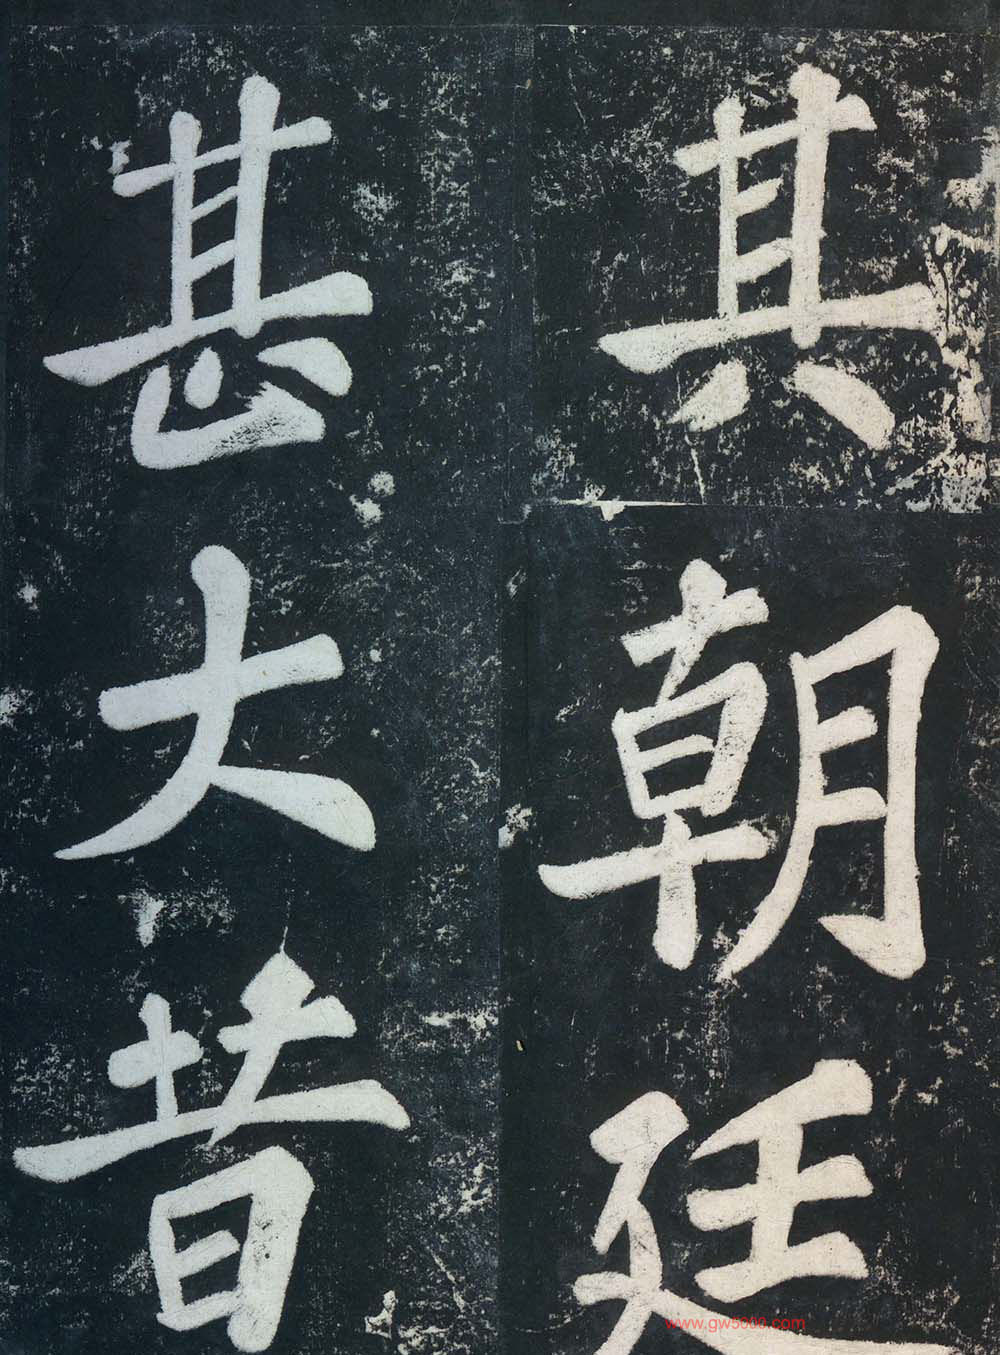 其朝廷
甚大昔
www.gw5000.com